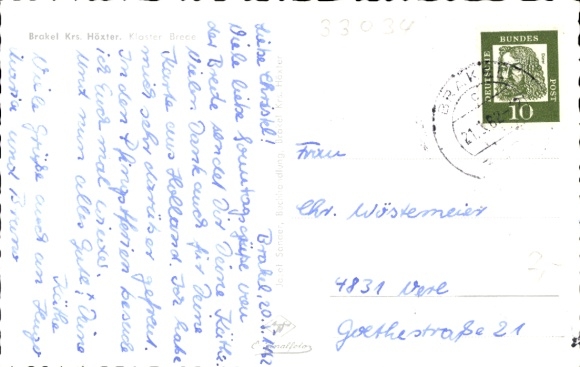 Brakel Krs. Höxter. Kloster Brede
33034
Brakel, 20.5.1962
Liebe Christel!
Viele liebe Sonntagsgrüße von
der Brede sendet Dir Deine Käthe.
Vielen Dank auch für Deine
Karte aus Holland. Ich habe
mich sehr darüber gefreut.
In den Pfingstferien besuche
ich Euch mal wieder.
Und nun alles Gute, Deine
Käthe
Viele Grüße auch an Hugo
und Bruno
DEUTSCHE
BUNDES
POST
10
BRAKEL
Frau
Chr. Wöstemeier
4831 Verl
Goethestraße 21
2,-